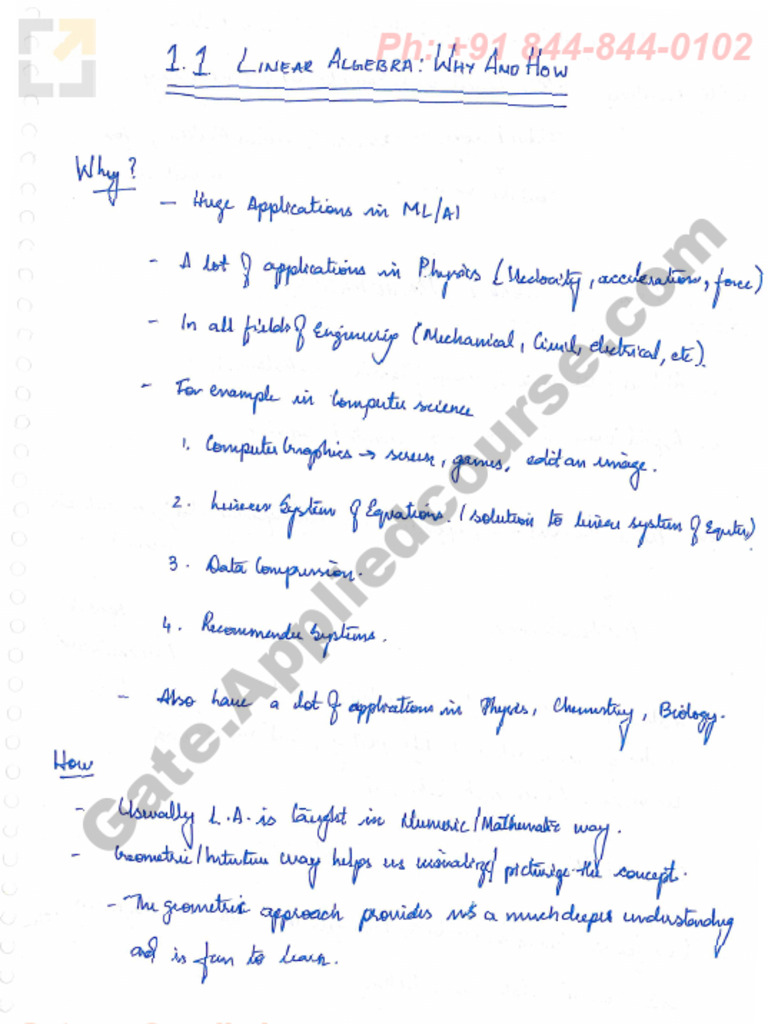 Ph: +91 844-844-0102
1.1 LINEAR ALGEBRA: WHY AND HOW
Why?
- Huge Applications in ML/AI
- A lot of applications in Physics (Velocity, acceleration, force)
- In all fields of Engineering (Mechanical, Civil, electrical, etc).
- For example in Computer science
1. Computer Graphics → screen, games, edit an image.
2. Linear System of Equations. (solution to linear system of Equtns)
3. Data Compression.
4. Recommender Systems.
- Also have a lot of applications in Physics, Chemistry, Biology.
How
- Usually L.A. is taught in Numeric/Mathematic way.
- Geometric/Intutive way helps us visualize/picturize the concept.
- The geometric approach provides us a much deeper understanding
and is fun to learn.
Gate.Appliedcourse.com